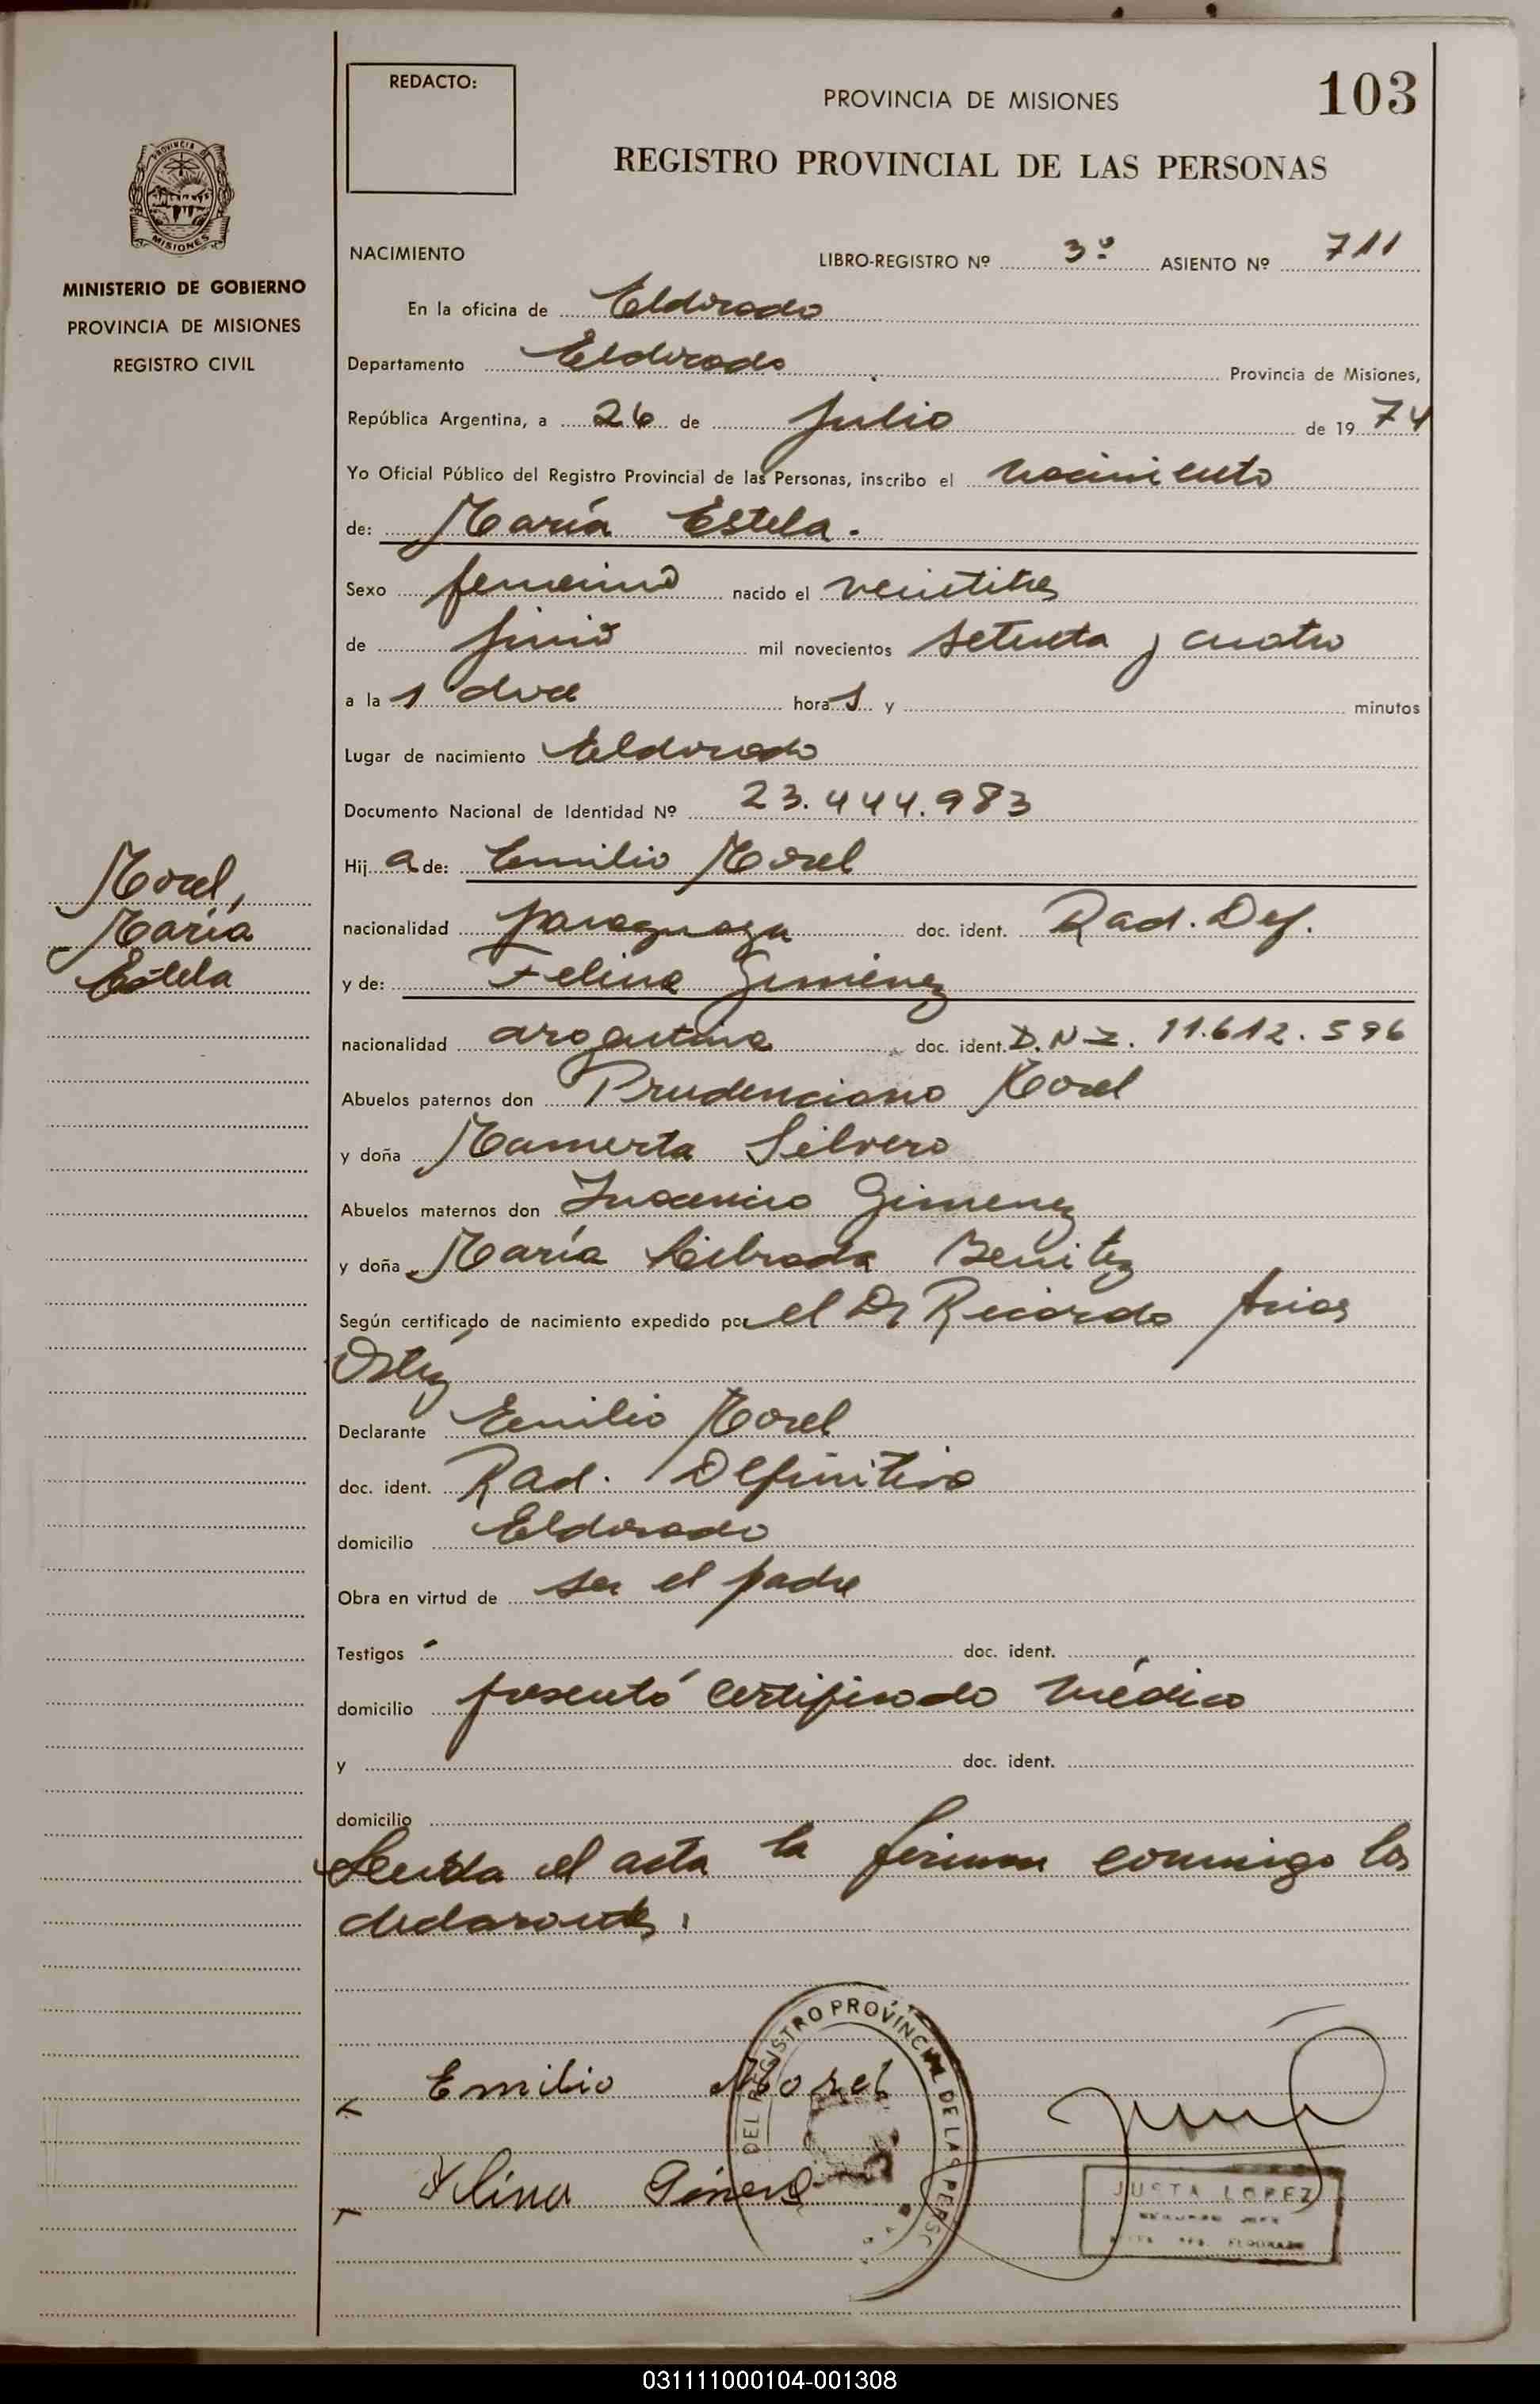 REDACTO:
PROVINCIA DE MISIONES
103
REGISTRO PROVINCIAL DE LAS PERSONAS
PROVINCIA DE
MISIONES
MINISTERIO DE GOBIERNO
PROVINCIA DE MISIONES
REGISTRO CIVIL
NACIMIENTO LIBRO-REGISTRO Nº 3º ASIENTO Nº 711
En la oficina de Eldorado
Departamento Eldorado Provincia de Misiones,
República Argentina, a 26 de Julio de 19 74
Yo Oficial Público del Registro Provincial de las Personas, inscribo el nacimiento
de: María Estela.
Sexo femenino nacido el veintitres
de junio mil novecientos setenta y cuatro
a la s doce hora s y minutos
Lugar de nacimiento Eldorado
Documento Nacional de Identidad Nº 23.444.983
Hij a de: Emilio Morel
Morel,
María
Estela
nacionalidad paraguaya doc. ident. Rad. Def.
y de: Felina Gimenez
nacionalidad argentina doc. ident. D.N.I. 11.612.596
Abuelos paternos don Prudenciano Morel
y doña Mamerta Silvero
Abuelos maternos don Inocencio Gimenez
y doña María Librada Benitez
Según certificado de nacimiento expedido por el Dr Ricardo Arias
Ortiz
Declarante Emilio Morel
doc. ident. Rad. Definitiva
domicilio Eldorado
Obra en virtud de ser el padre
Testigos doc. ident.
domicilio presentó certificado médico
y doc. ident.
domicilio
Leida el acta la firman conmigo los
declarantes.
Emilio Morel
DEL REGISTRO PROVINCIAL DE LAS PERSO
JUSTA LOPEZ
031111000104-001308